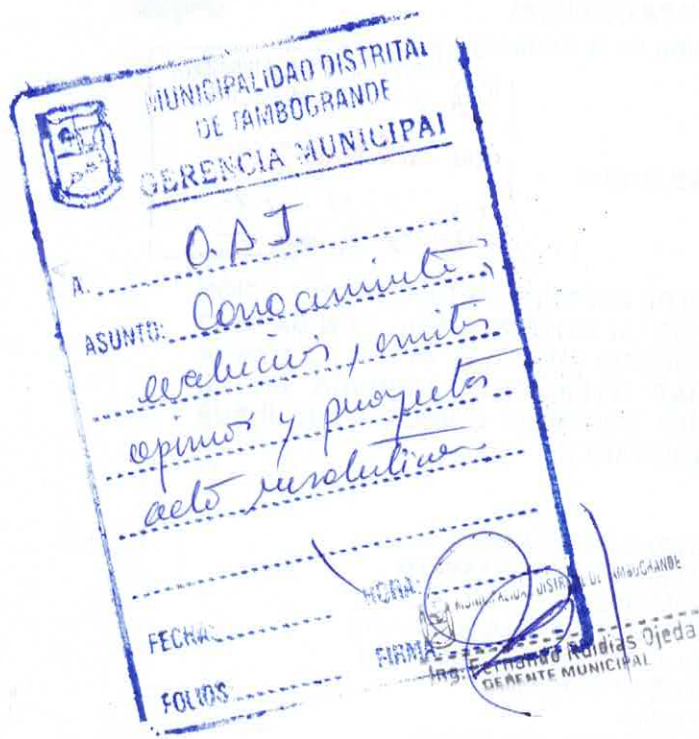 MUNICIPALIDAD DISTRITAL
DE TAMBOGRANDE
GERENCIA MUNICIPAL
A: O.A.J
ASUNTO: Conocimiento,
evaluación, emitir
opinión y proyectar
acto resolutivo
HORA:
FECHA:
FIRMA:
FOLIOS
MUNICIPALIDAD DISTRITAL DE TAMBOGRANDE
Ing. Fernando Ojeda
GERENTE MUNICIPAL